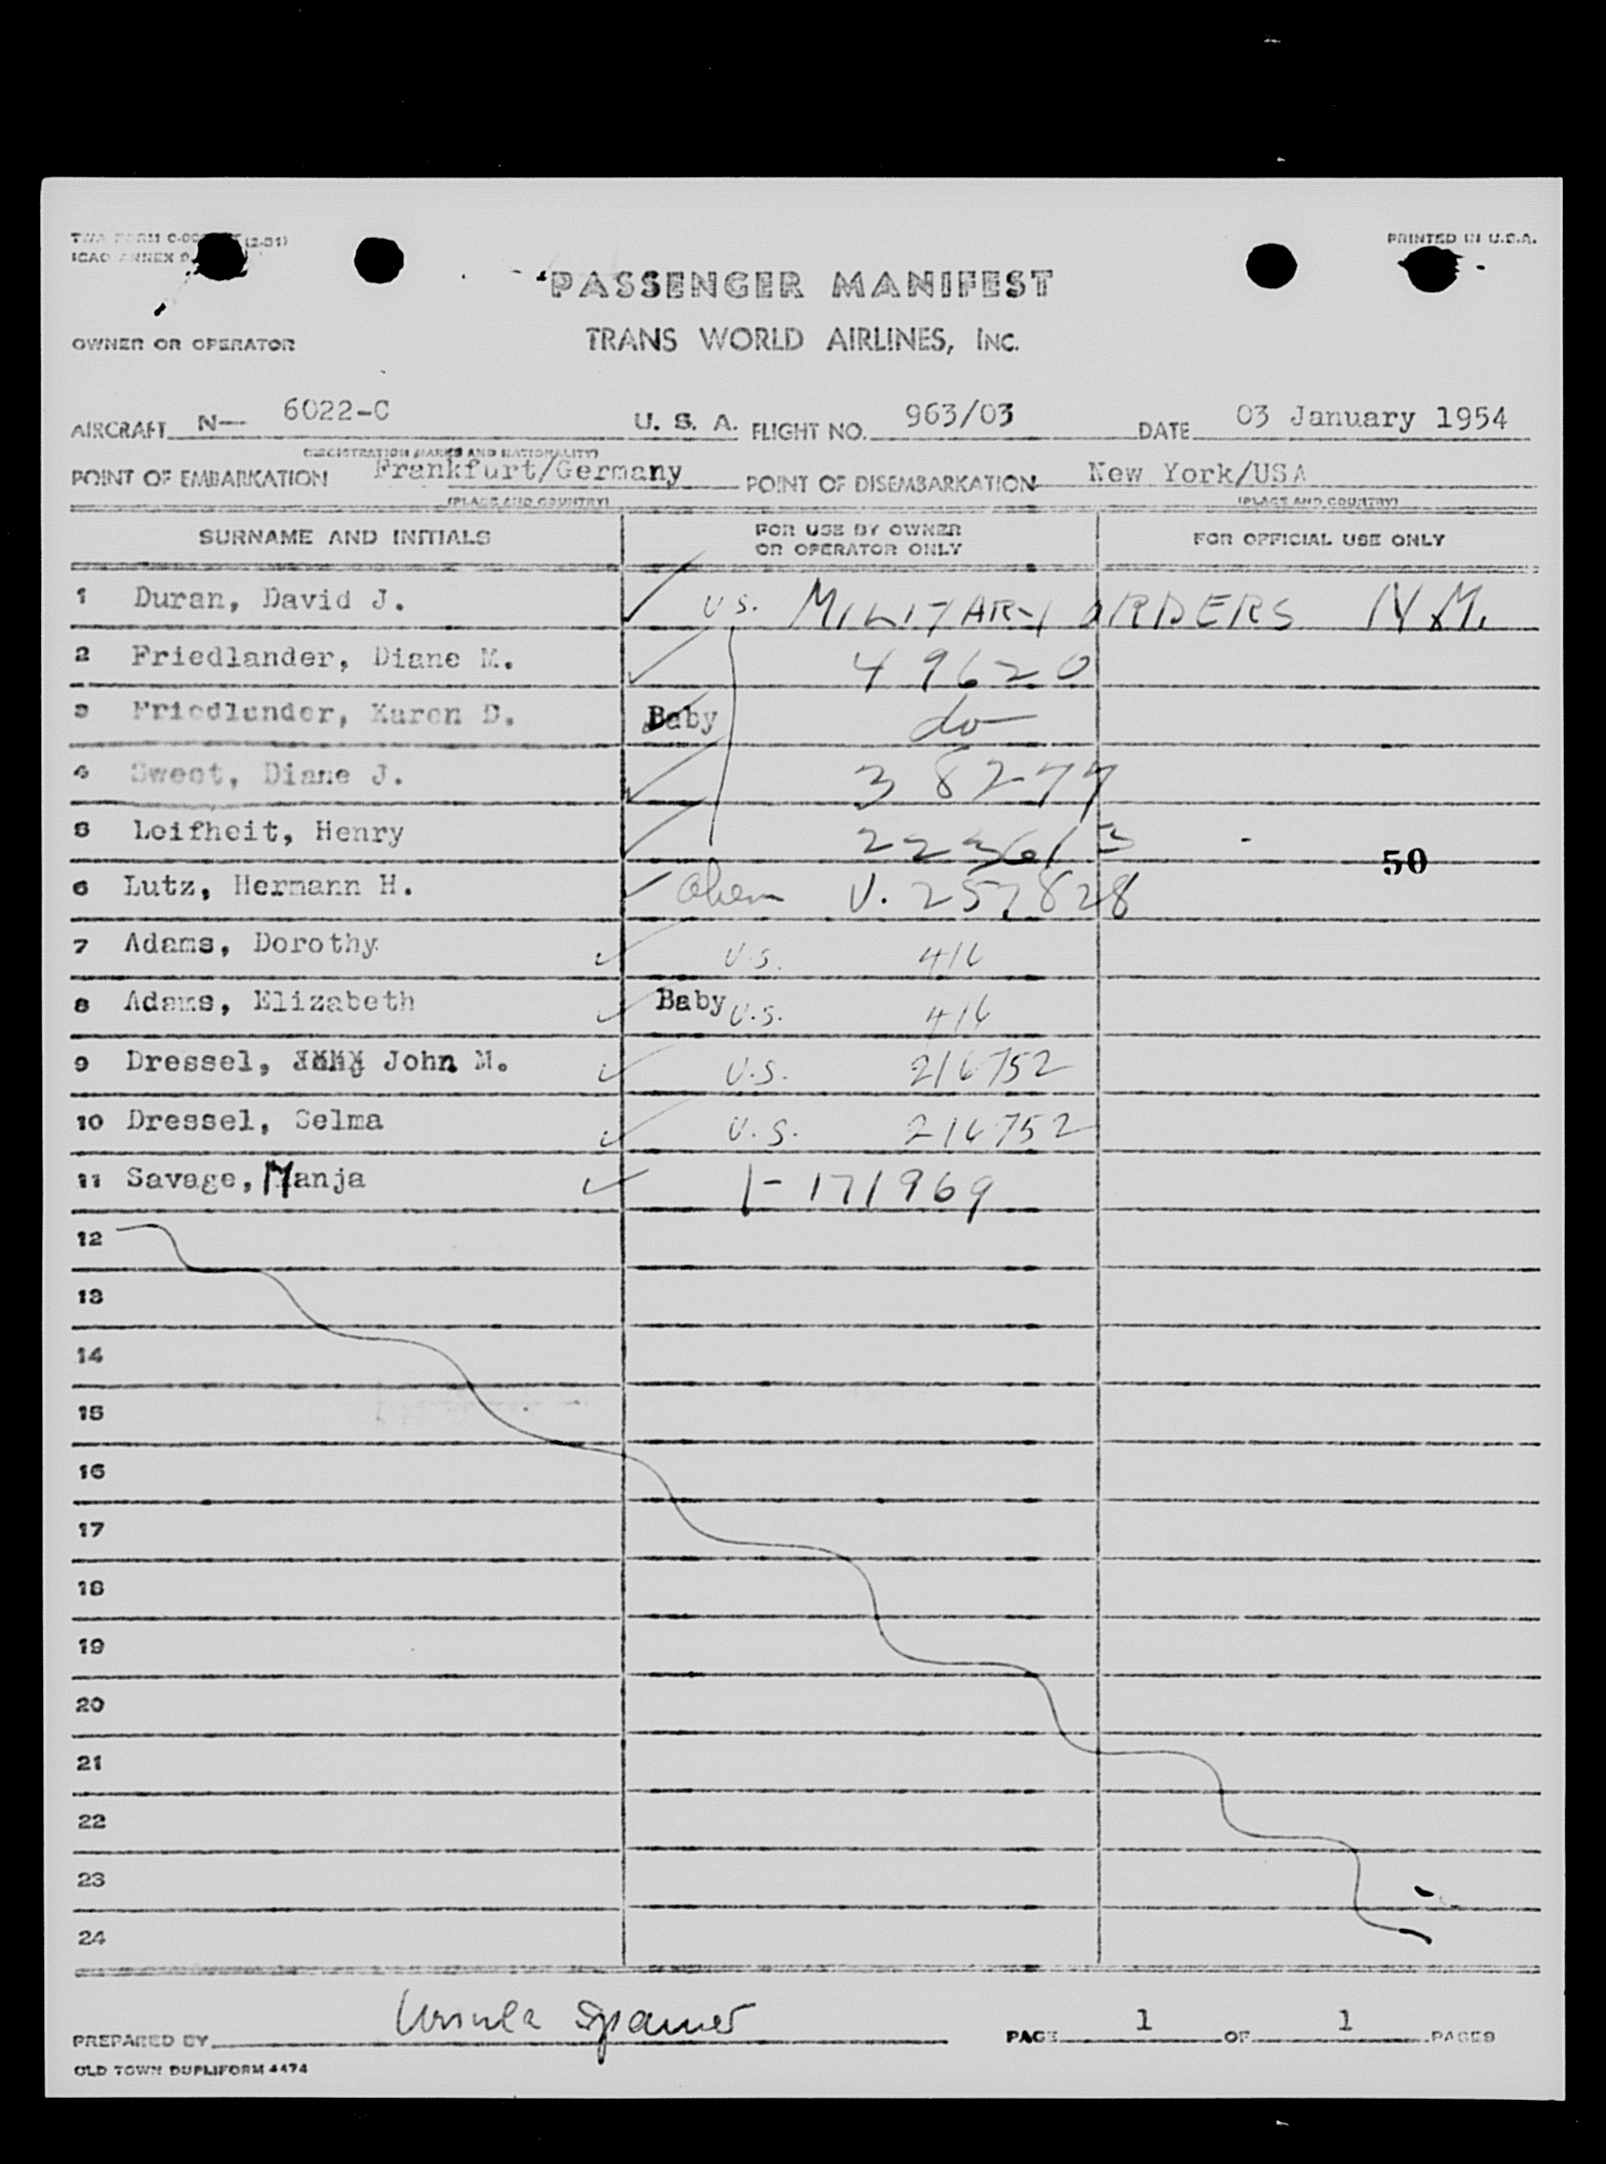 TWA FORM (2-51)
PRINTED IN U.S.A.
ICAO ANNEX 9
PASSENGER MANIFEST
OWNER OR OPERATOR TRANS WORLD AIRLINES, INC.
AIRCRAFT N— 6022-C U. S. A. FLIGHT NO. 963/03 DATE 03 January 1954
(REGISTRATION MARKS AND NATIONALITY)
POINT OF EMBARKATION Frankfurt/Germany POINT OF DISEMBARKATION New York/USA
(PLACE AND COUNTRY) (PLACE AND COUNTRY)
SURNAME AND INITIALS FOR USE BY OWNER OR OPERATOR ONLY FOR OFFICIAL USE ONLY
1 Duran, David J. ✓ U.S. MILITARY ORDERS
2 Friedlander, Diane M. ✓ 49620
3 Friedlander, Karen D. Baby do
4 Sweet, Diane J. ✓ 38277
5 Leifheit, Henry ✓ 223613
50
6 Lutz, Hermann H. ✓ V. 257828
7 Adams, Dorothy ✓ U.S. 416
8 Adams, Elizabeth ✓ Baby U.S. 416
9 Dressel, John M. ✓ U.S. 216752
10 Dressel, Selma ✓ U.S. 216752
11 Savage, Manja ✓ 1-171969
12
13
14
15
16
17
18
19
20
21
22
23
24
PREPARED BY Ursula Spamer PAGE 1 OF 1 PAGES
OLD TOWN DUPLIFORM 4474